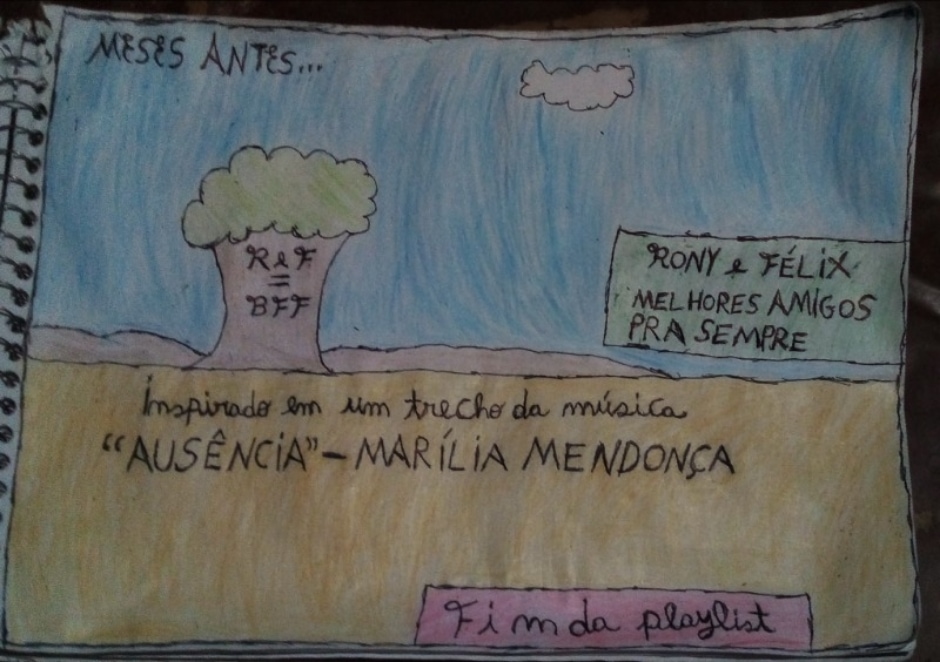 MESES ANTES...
R e F
=
BFF
RONY e FÉLIX
MELHORES AMIGOS
PRA SEMPRE
Inspirado em um trecho da música
"AUSÊNCIA" - MARÍLIA MENDONÇA
Fim da playlist